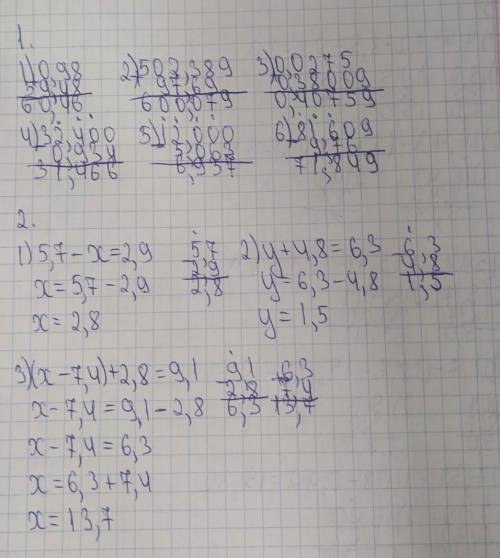 1.
1) 0,98 2) 502,389 3) 0,0275
59,48 97,69 0,38009
60,46 600,079 0,40759
4) 32,400 5) 12,000 6) 81,609
0,934 5,063 9,76
31,466 6,937 71,849
2.
1) 5,7 - x = 2,9 5,7 2) y + 4,8 = 6,3 6,3
x = 5,7 - 2,9 2,9 y = 6,3 - 4,8 4,8
x = 2,8 2,8 y = 1,5 1,5
3) (x - 7,4) + 2,8 = 9,1 9,1 6,3
x - 7,4 = 9,1 - 2,8 2,8 7,4
6,3 13,7
x - 7,4 = 6,3
x = 6,3 + 7,4
x = 13,7